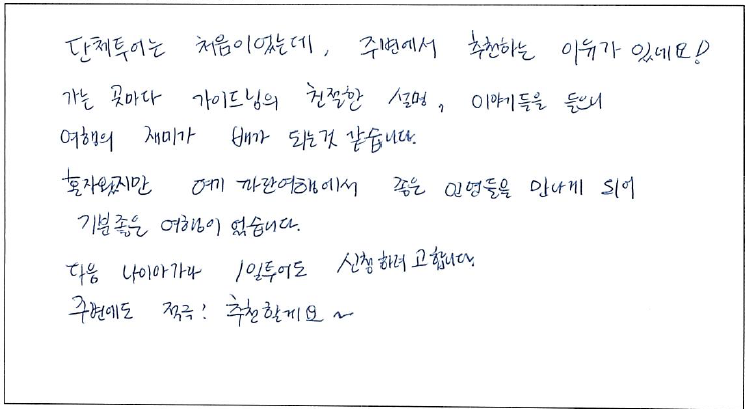 단체투어는 처음이었는데, 주변에서 추천하는 이유가 있네요!
가는 곳마다 가이드님의 친절한 설명, 이야기들을 들으니
여행의 재미가 배가 되는것 같습니다.
혼자왔지만 여기 파란여행에서 좋은 인연들을 만나게 되어
기분좋은 여행이 었습니다.
다음 나이아가라 1일투어도 신청하려고합니다.
주변에도 적극! 추천할게요~